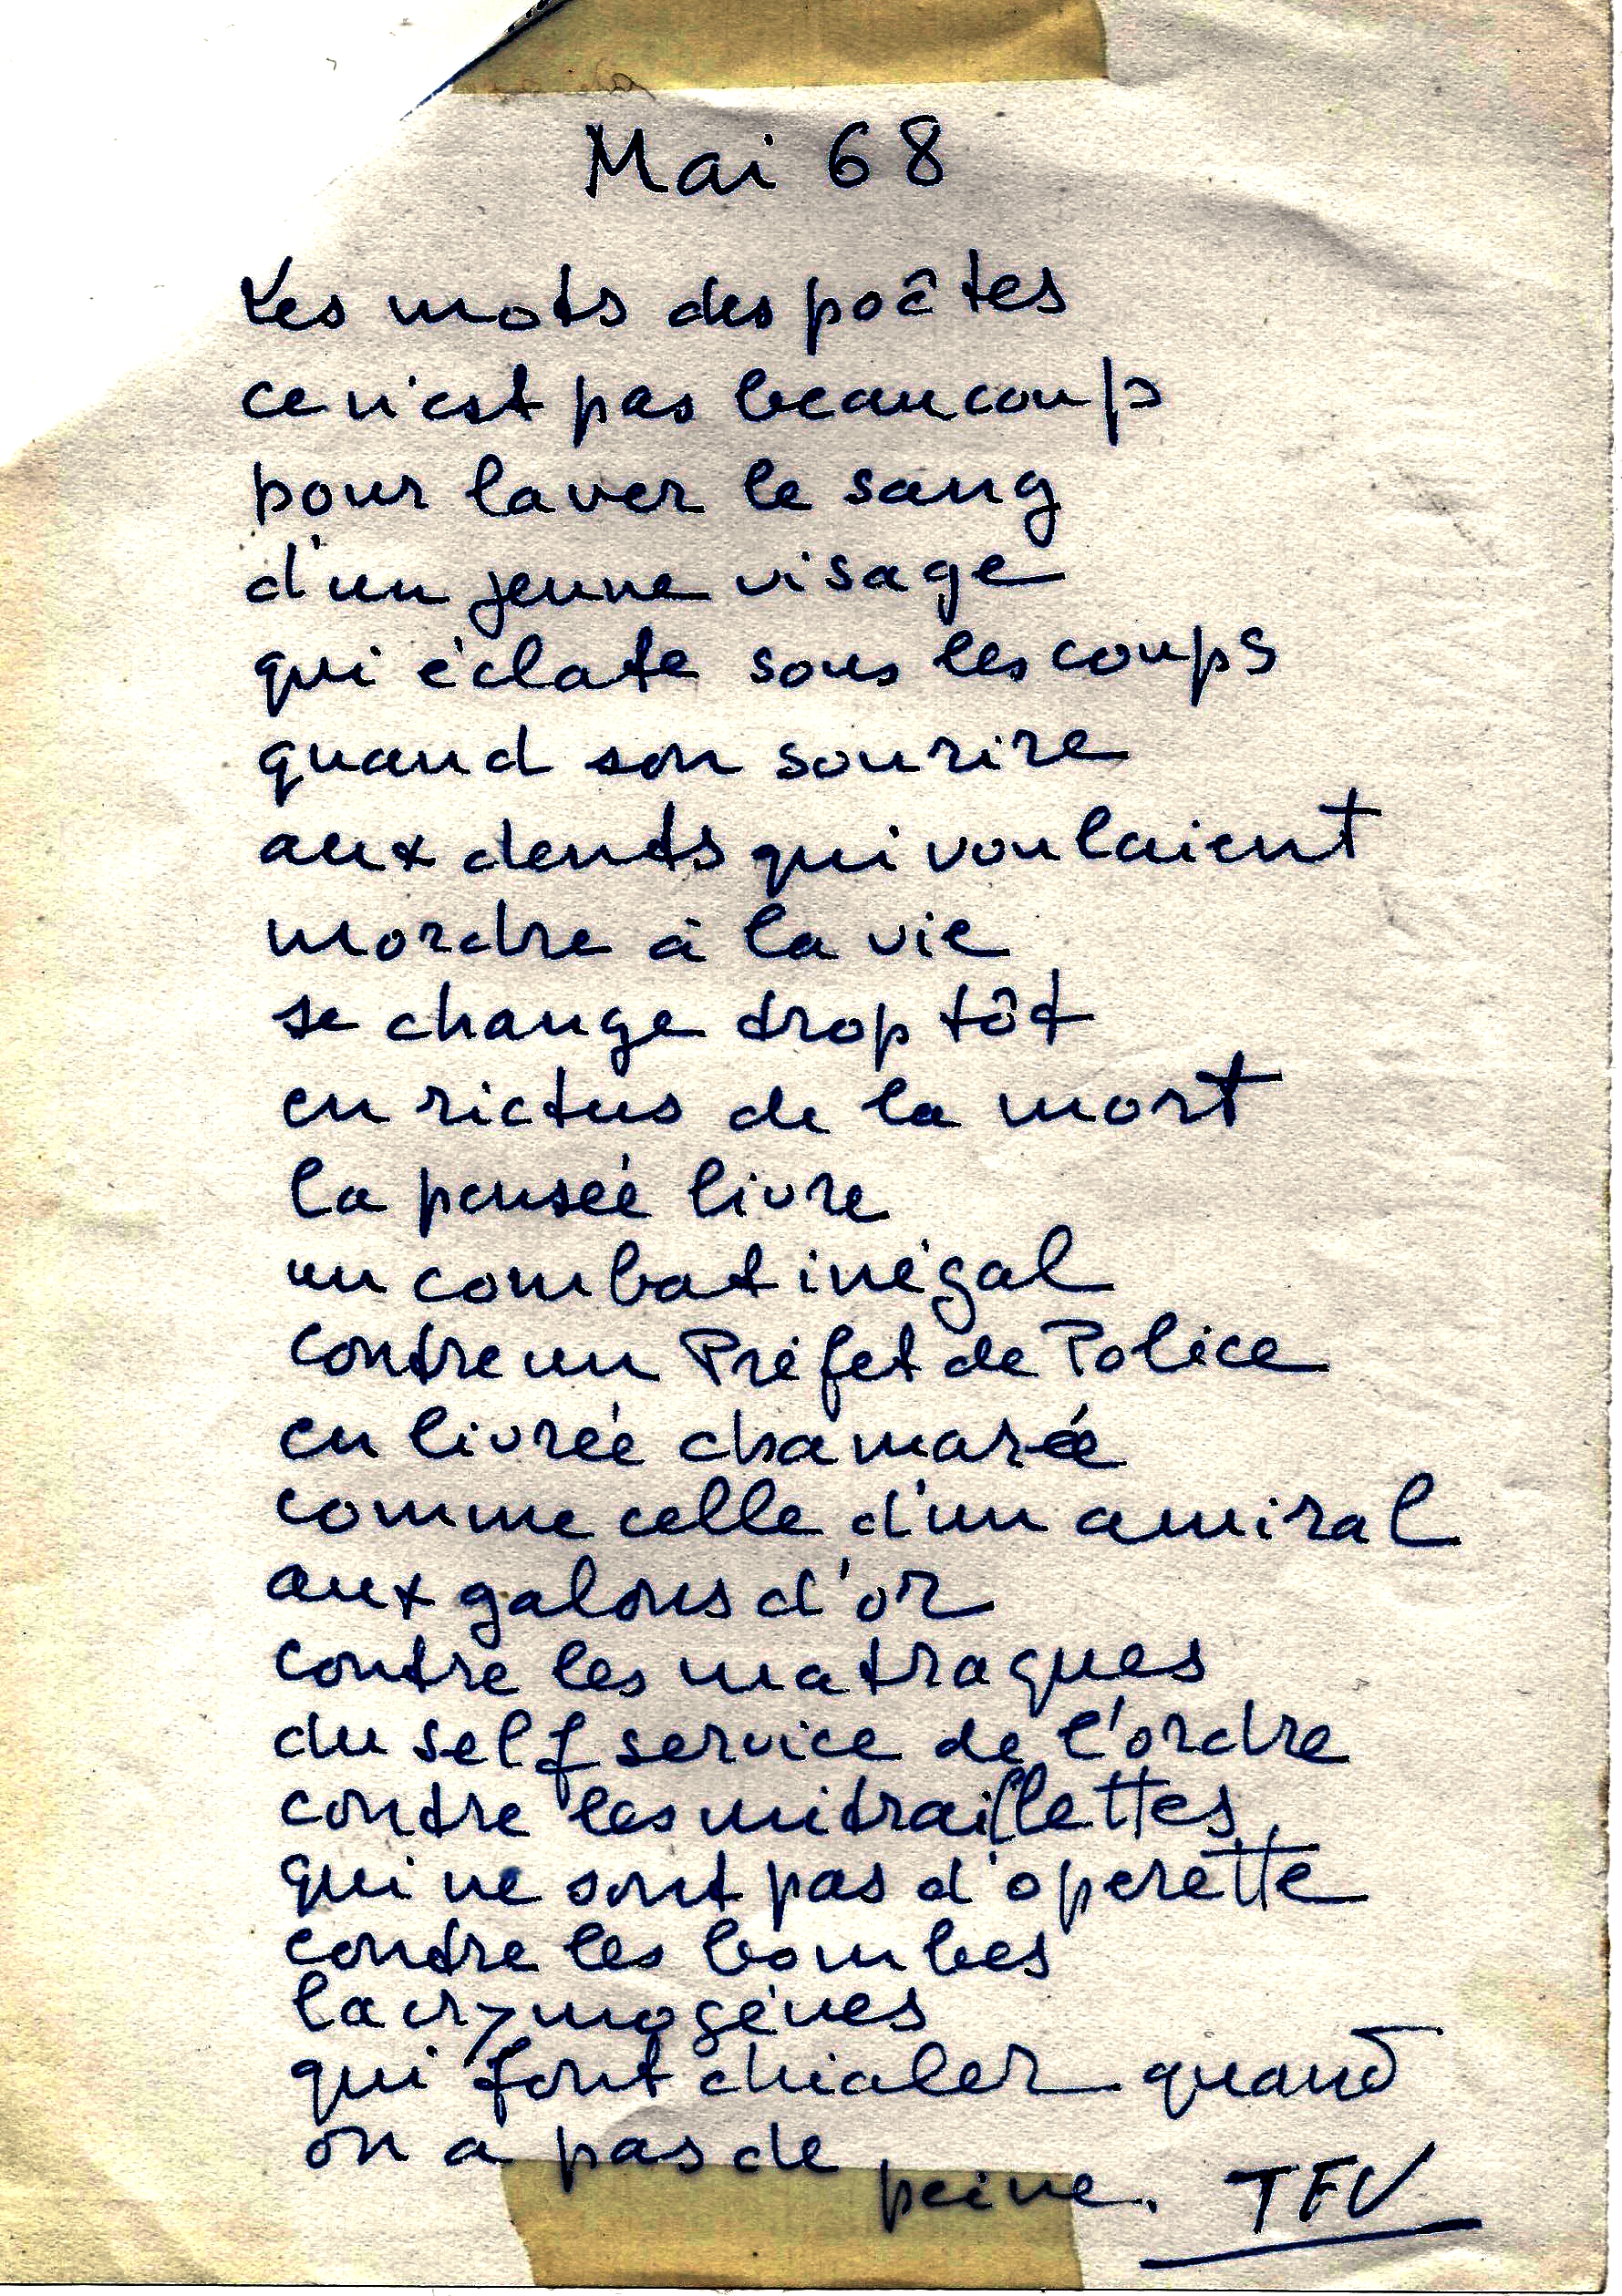 Mai 68
Les mots des poêtes
ce n'est pas beaucoup
pour laver le sang
d'un jeune visage
qui éclate sous les coups
quand son sourire
aux dents qui voulaient
mordre à la vie
se change trop tôt
en rictus de la mort
la pensée livre
un combat inégal
contre un Préfet de Police
en livrée chamarée
comme celle d'un amiral
aux galons d'or
contre les matraques
du self service de l'ordre
contre les mitraillettes
qui ne sont pas d'operette
contre les bombes
lacrymogénes
qui font chialer quand
on a pas de peine. TFV